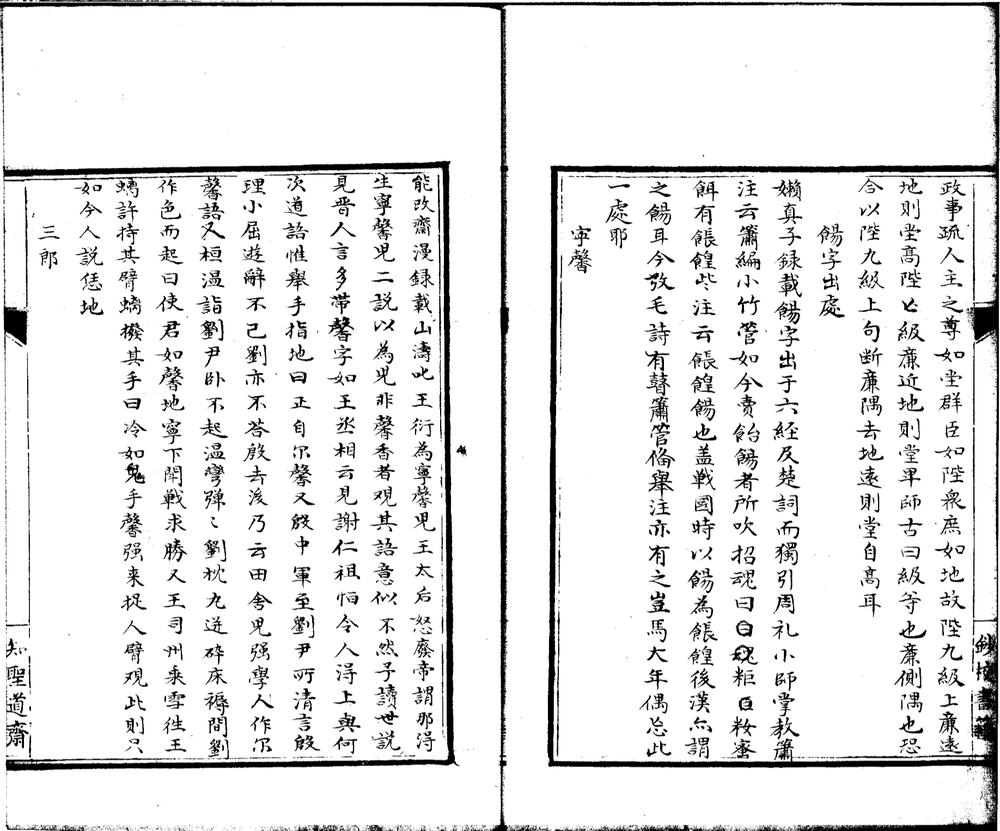 政事疏人主之尊如堂群臣如陛衆庶如地故陛九級上廉遠
地則堂髙陛七級廉近地則堂卑師古曰級等也廉側隅也恐
合以陛九級上句断廉隅去地遠則堂自髙耳
餳字出處
嬾真子録載餳字出于六経及楚詞而獨引周礼小師掌教簫
注云簫編小竹管如今賣飴餳者所吹招魂曰粔籹蜜
餌有餦餭些注云餦餭餳也盖戦國時以餳為餦餭後漢亦謂
之餳耳今攷毛詩有瞽簫管俻舉注亦有之豈馬大年偶忘此
一處耶
寧馨
能改齋漫録載山濤叱王衍為寧馨児王太后怒廢帝謂那淂
生寧馨児二説以為児非馨香者观其語意似不然予讀世説
見晋人言多帯馨字如王丞相云見謝仁祖恒令人淂上與何
次道語惟舉手指地曰正自尔馨又殷中軍至劉尹所清言殷
理小屈遊辭不已劉亦不荅殷去後乃云田舍児强學人作尔
馨語又桓温詣劉尹卧不起温彎弾〻劉枕丸迸碎床褥間劉
作色而起曰使君如馨地寧下閗戦求勝又王司州乘雪徃王
螭許持其臂螭撥其手曰冷如鬼手馨强来捉人臂观此則只
如今人説恁地
三郎
知聖道齋
鈔校書籍